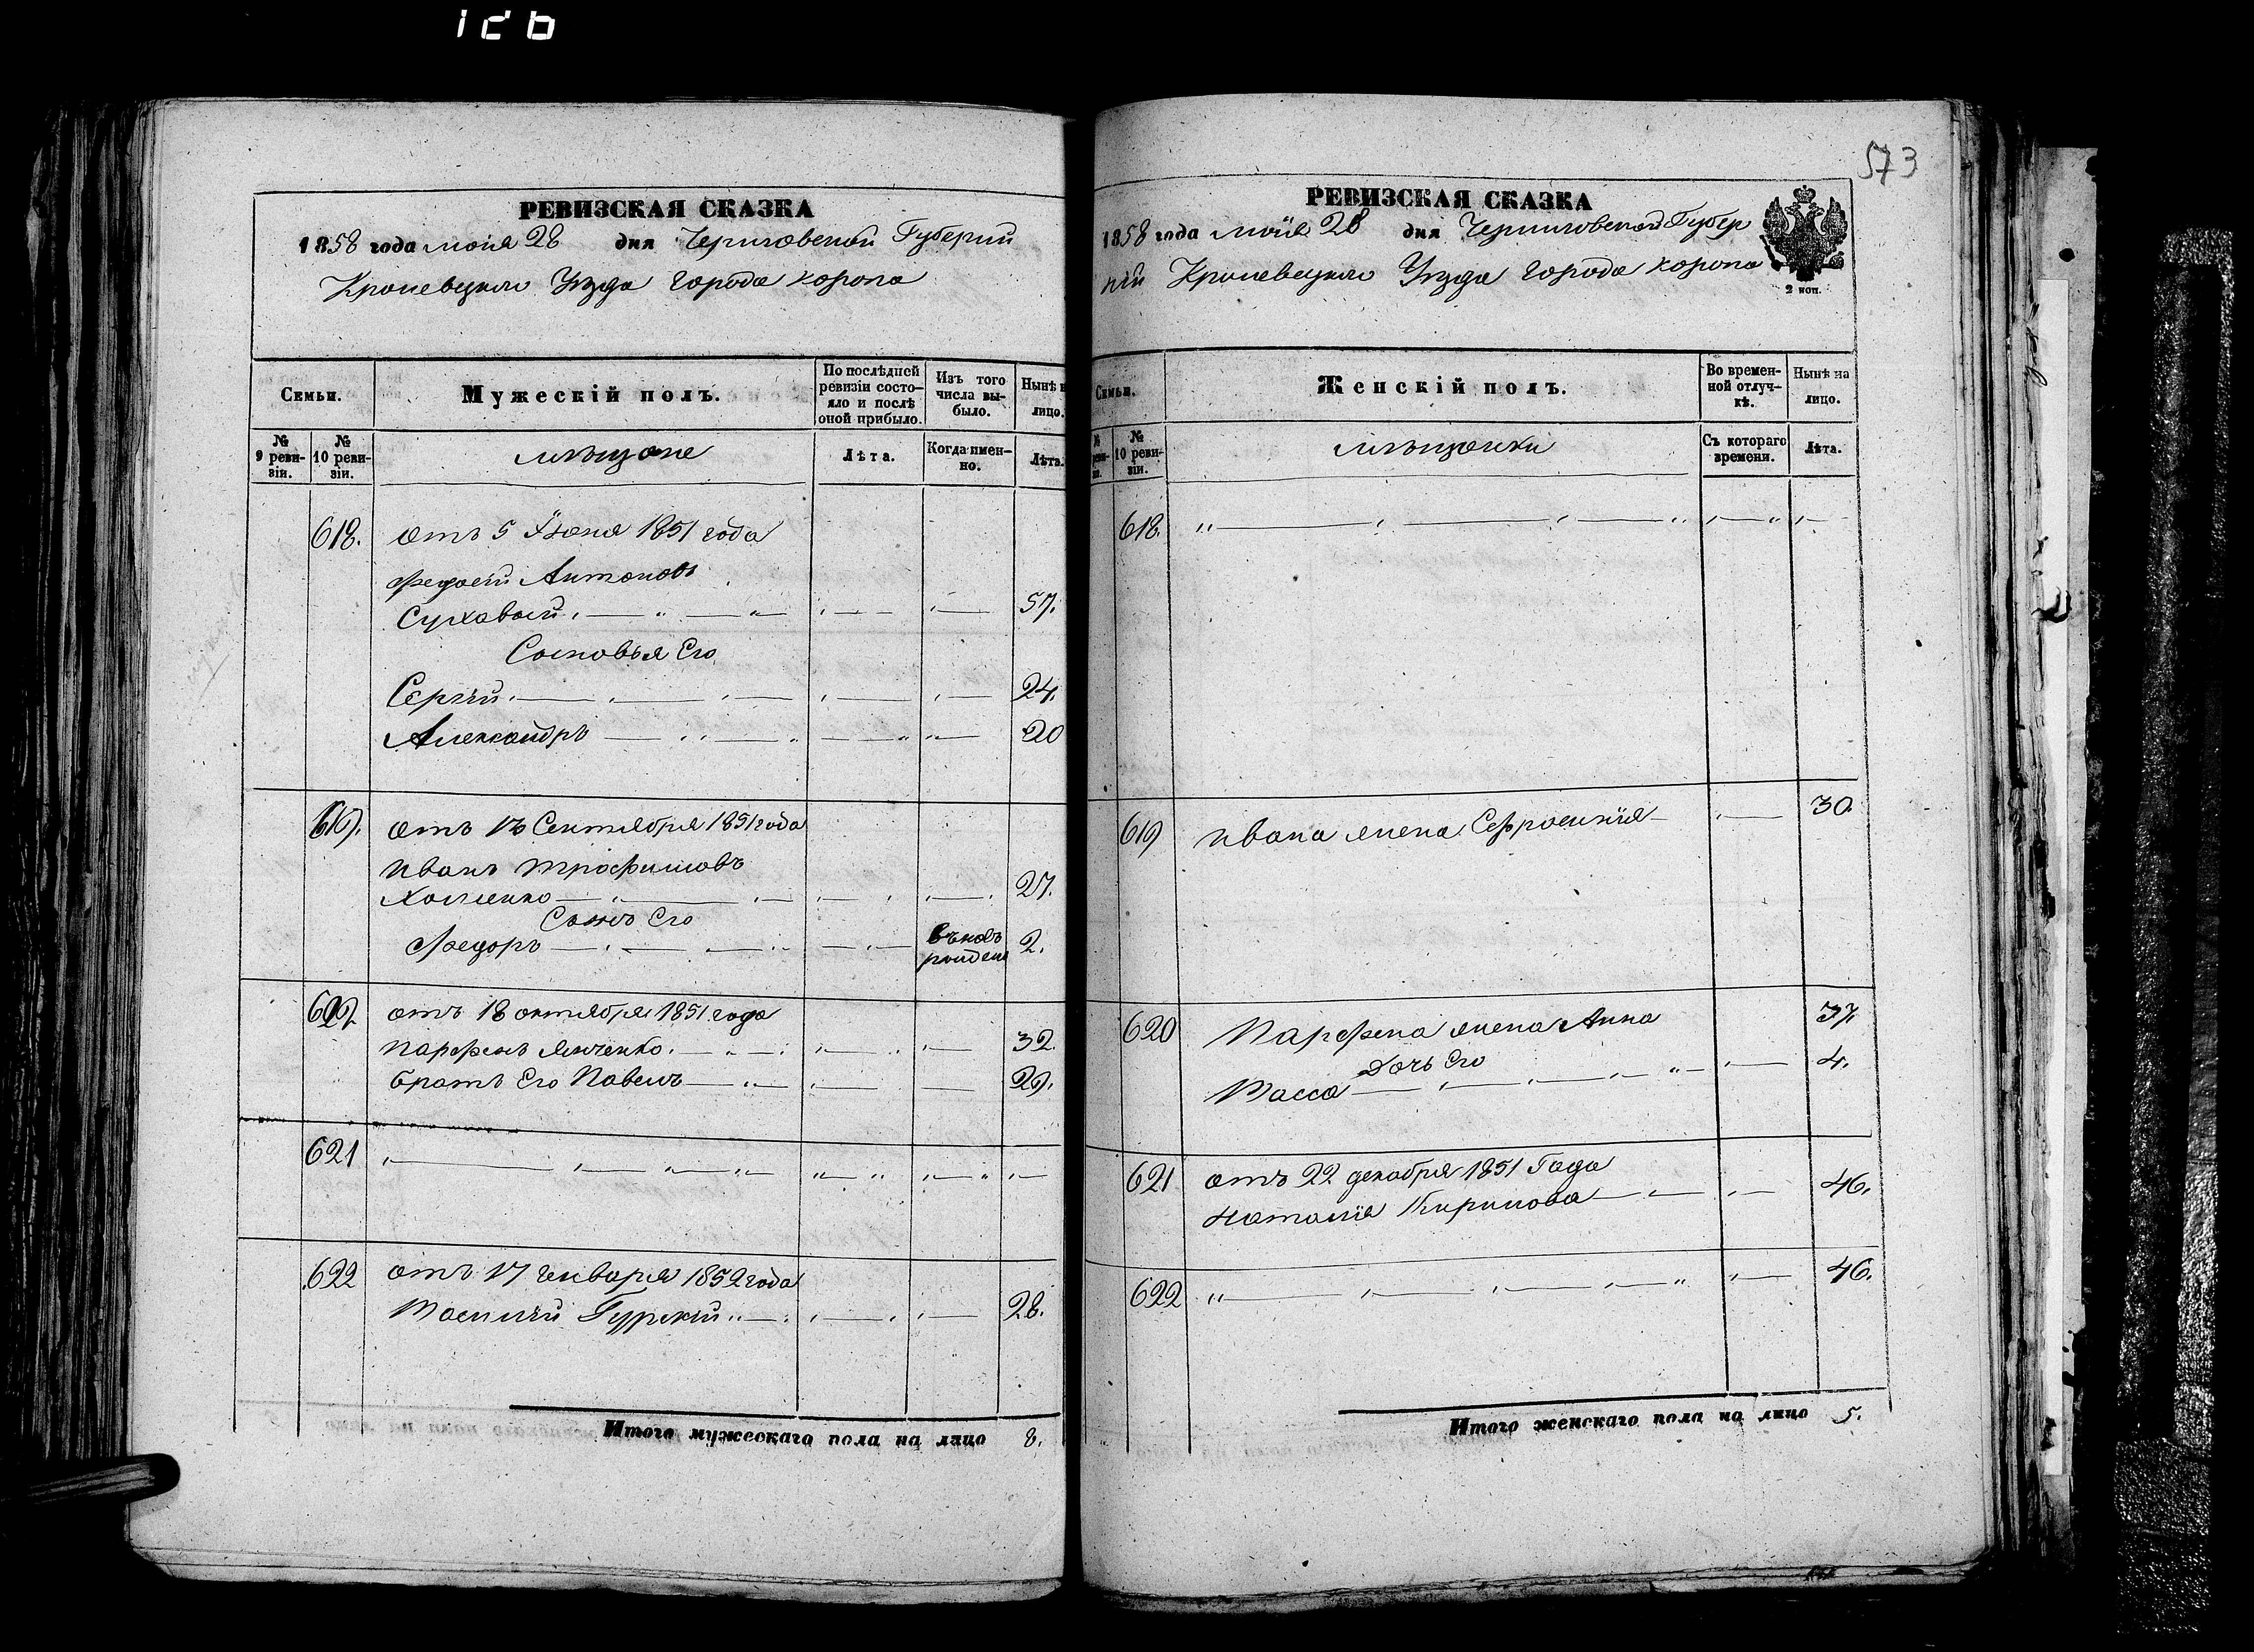 573
РЕВИЗСКАЯ СКАЗКА
1858 года мaія 28 дня Черниговской Губерніи
Кролевецкаго Уѣзда города Коропа
Семьи.
Мужескій полъ.
По послѣдней ревизіи состояло и послѣ оной прибыло.
Изъ того числа выбыло.
Нынѣ н
лицо.
№ 9 ревизіи.
№ 10 ревизіи.
мѣщане
Лѣта.
Когда именно.
Лѣта.
618. отъ 5 Іюня 1851 года
Антоновъ
57.
Сыновья Его
Сергѣй 24.
Александръ 20
619. отъ 17 Сентября 1851 года
Иванъ Трофимовъ
27.
Сынъ Его
Федоръ вновь рожден 2.
620 отъ 18 октября 1851 года
Парфенъ Янченко 32.
братъ Его Павелъ 29.
621
622 отъ 17 генваря 1852 года
Василій Гурскій 28.
Итого мужескаго пола на лицо 8.
РЕВИЗСКАЯ СКАЗКА
1858 года маія 28 дня Черниговской Губер
ніи Кролевецкаго Уѣзда города Коропа
2 коп.
Семьи.
Женскій полъ.
Во временной отлучкѣ.
Нынѣ на лицо.
№ 10 ревизіи.
мѣщанки
Съ котораго времени.
Лѣта.
618.
619 Ивана жена 30.
620 Парфена жена Анна 37.
Дочь Его
Васса 4.
621 отъ 22 декабря 1851 Года
Наталія Кирилова 46.
622 46.
Итого женскаго пола на лицо 5.